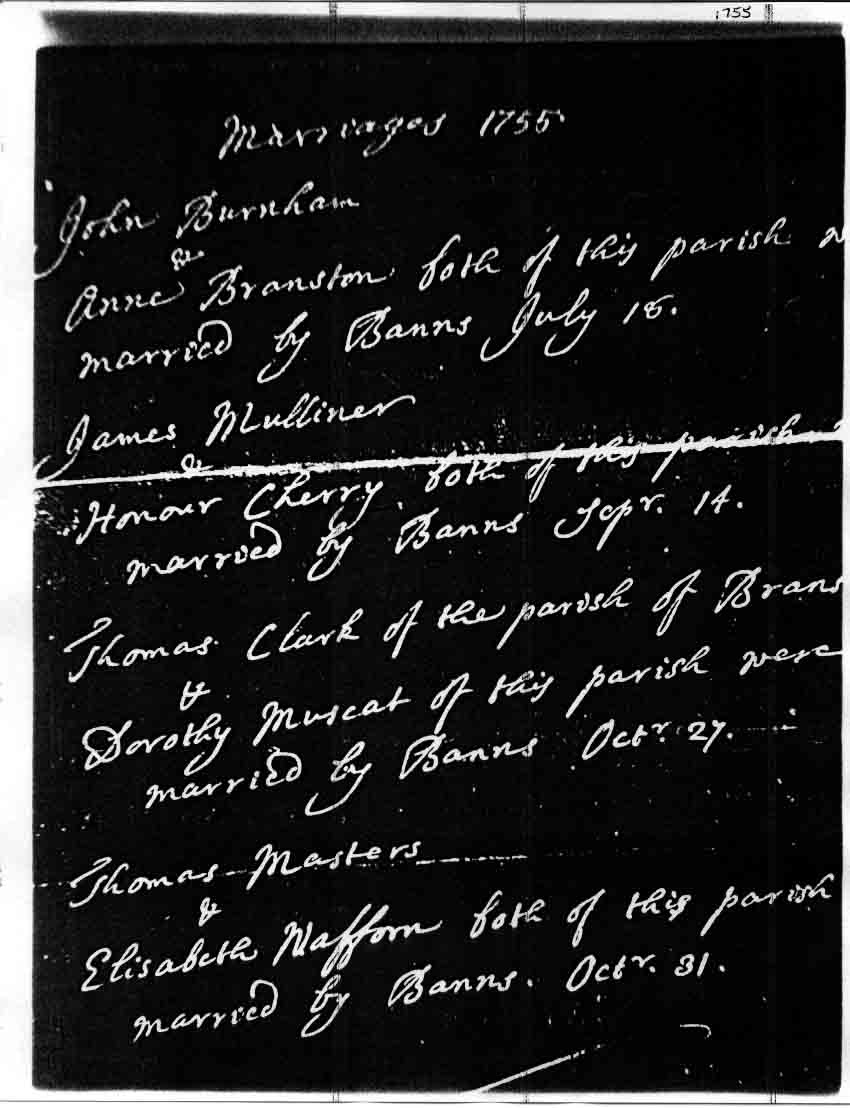 1755
Marriages 1755
John Burnham
&
Anne Branston both of this parish
married by Banns July 18.
James Mulliner
&
Honour Cherry both of this parish
married by Banns Sepr. 14.
Thomas Clark of the parish of Brans
&
Dorothy Muscat of this parish were
married by Banns Octr. 27.
Thomas Masters
&
Elisabeth Wafforn both of this parish
married by Banns. Octr. 31.